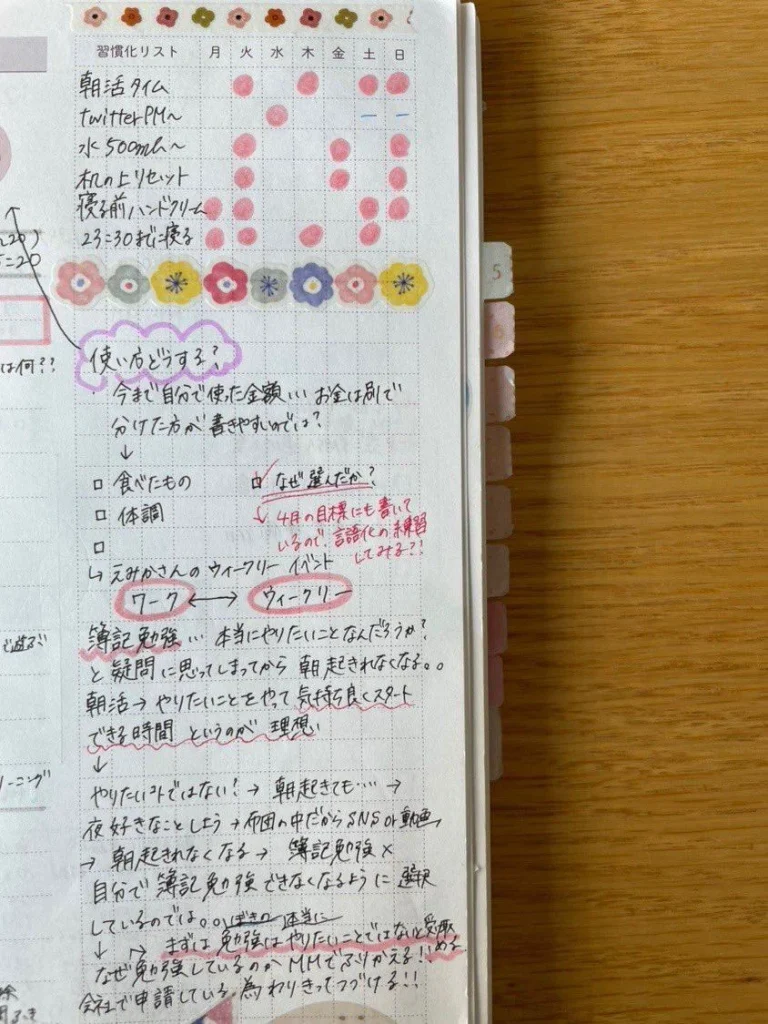 習慣化リスト 月 火 水 木 金 土 日
朝活タイム
twitterPM〜
水500mL〜
机の上リセット
寝る前ハンドクリーム
23:30までに寝る
使い方どうする?
・今まで自分で使った金額… お金は別で
分けた方が書きやすいのでは?
↓
□ 食べたもの
□ 体調
□
☑ なぜ選んだか?
↓ 4月の目標にも書いて
いるので、言語化の練習
してみる?!
↳ えみかさんのウィークリー イベント
ワーク ↔ ウィークリー
簿記勉強… 本当にやりたいことなんだろうか?
と疑問に思ってしまってから朝起きれなくなる。。
朝活→やりたいことをやって気持ち良くスタート
できる時間 というのが 理想
↓
やりたいコトではない! → 朝起きても… →
夜好きなことしよう→布団の中だからSNS or 動画
→ 朝起きれなくなる → 簿記勉強×
自分で簿記勉強できなくなるように 選択
しているのでは。。
↓ まずは勉強はやりたいことではないと受け止める
なぜ勉強しているのかMMでふりかえる!!
会社で申請している為わりきってつづける!!
20)
5:20
は何??
で遊ぶ
ーニング
5